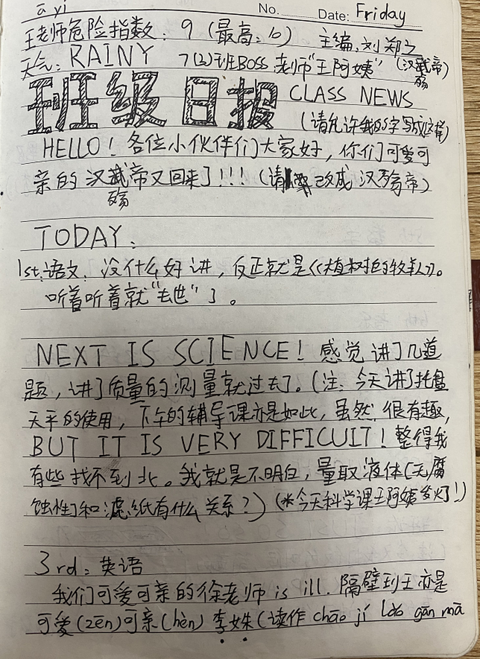 a yi
No.
Date: Friday
王老师危险指数: 9 (最高: 10) 主编,刘郑之
天气: RAINY 7(2)班BOSS老师"王阿姨" (汉武帝)
殇
班级日报 CLASS NEWS
(请允许我的字写成这样)
HELLO! 各位小伙伴们大家好,你们可爱可
亲的汉武帝又回来了!!! (请改成汉殇帝)
殇
TODAY:
1st:语文. 没什么好讲,反正就是《植树的牧羊人》。
听着听着就"去世"了。
NEXT IS SCIENCE! 感觉讲了几道
题,讲了质量的测量就过去了。(注:今天讲了托盘
天平的使用,下午的辅导课亦是如此,虽然很有趣,
BUT IT IS VERY DIFFICUIT! 整得我
有些找不到北。我就是不明白,量取液体(无腐
蚀性)和滤纸有什么关系?) (*今天科学课王阿姨发火了!)
3rd: 英语
我们可爱可亲的徐老师 is ill. 隔壁到王亦是
可爱(zēn)可亲(hèn) 李姝(读作 chāo jí lǎo gān mā